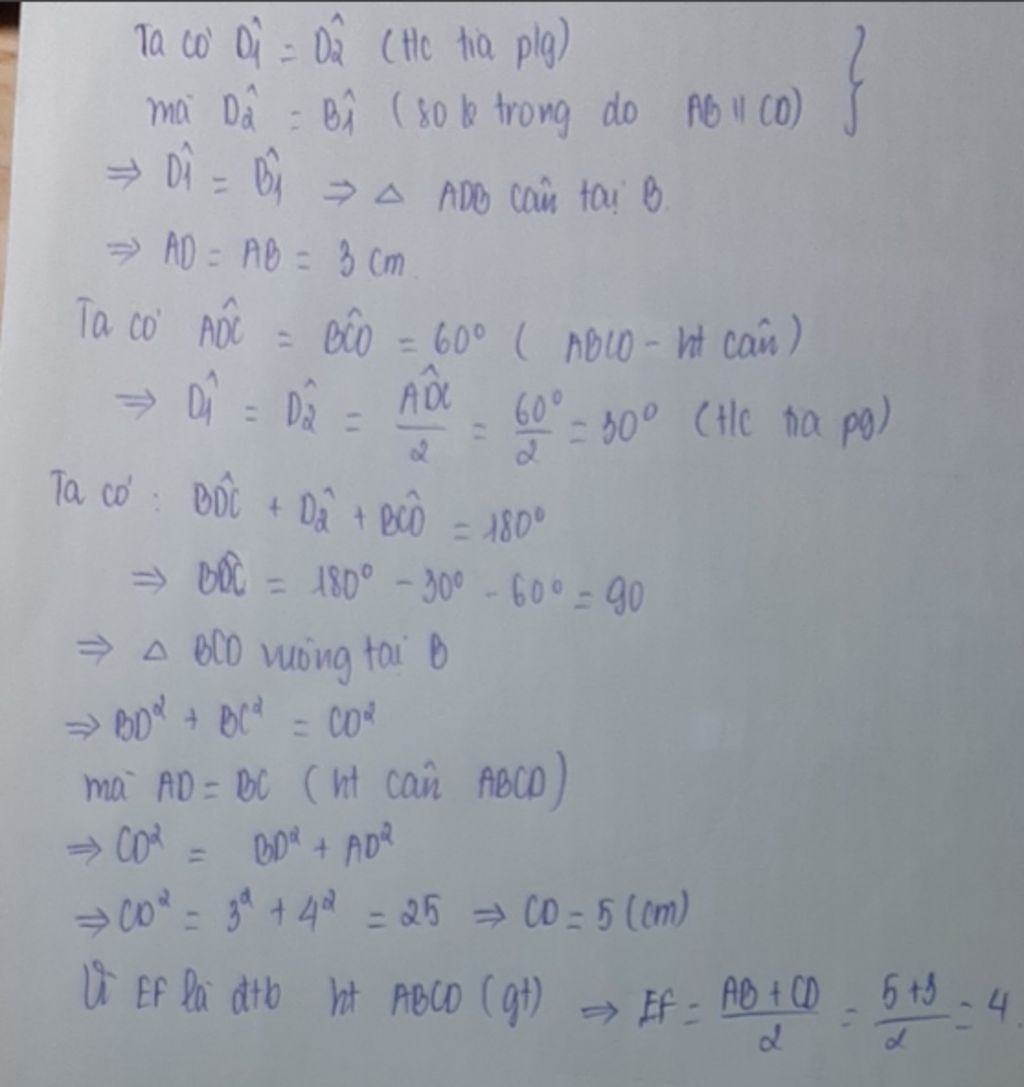 Ta có D̂1 = D̂2 (t/c tia p/g) }
mà D̂2 = B̂1 (so le trong do AB // CD)
⇒ D̂1 = B̂1 ⇒ △ ADB cân tại B.
⇒ AD = AB = 3 cm.
Ta có AD̂C = BĈD = 60° ( ABCD - ht cân)
⇒ D̂1 = D̂2 = AD̂C/2 = 60°/2 = 30° (t/c tia pg)
Ta có : BD̂C + D̂2 + BĈD = 180°
⇒ BD̂C = 180° - 30° - 60° = 90
⇒ △ BCD vuông tại B
⇒ BD² + BC² = CD²
mà AD = BC (ht cân ABCD)
⇒ CD² = BD² + AD²
⇒ CD² = 3² + 4² = 25 ⇒ CD = 5 (cm)
Vì EF là đtb ht ABCD (gt) ⇒ EF = AB + CD/2 = 5+3/2 = 4.